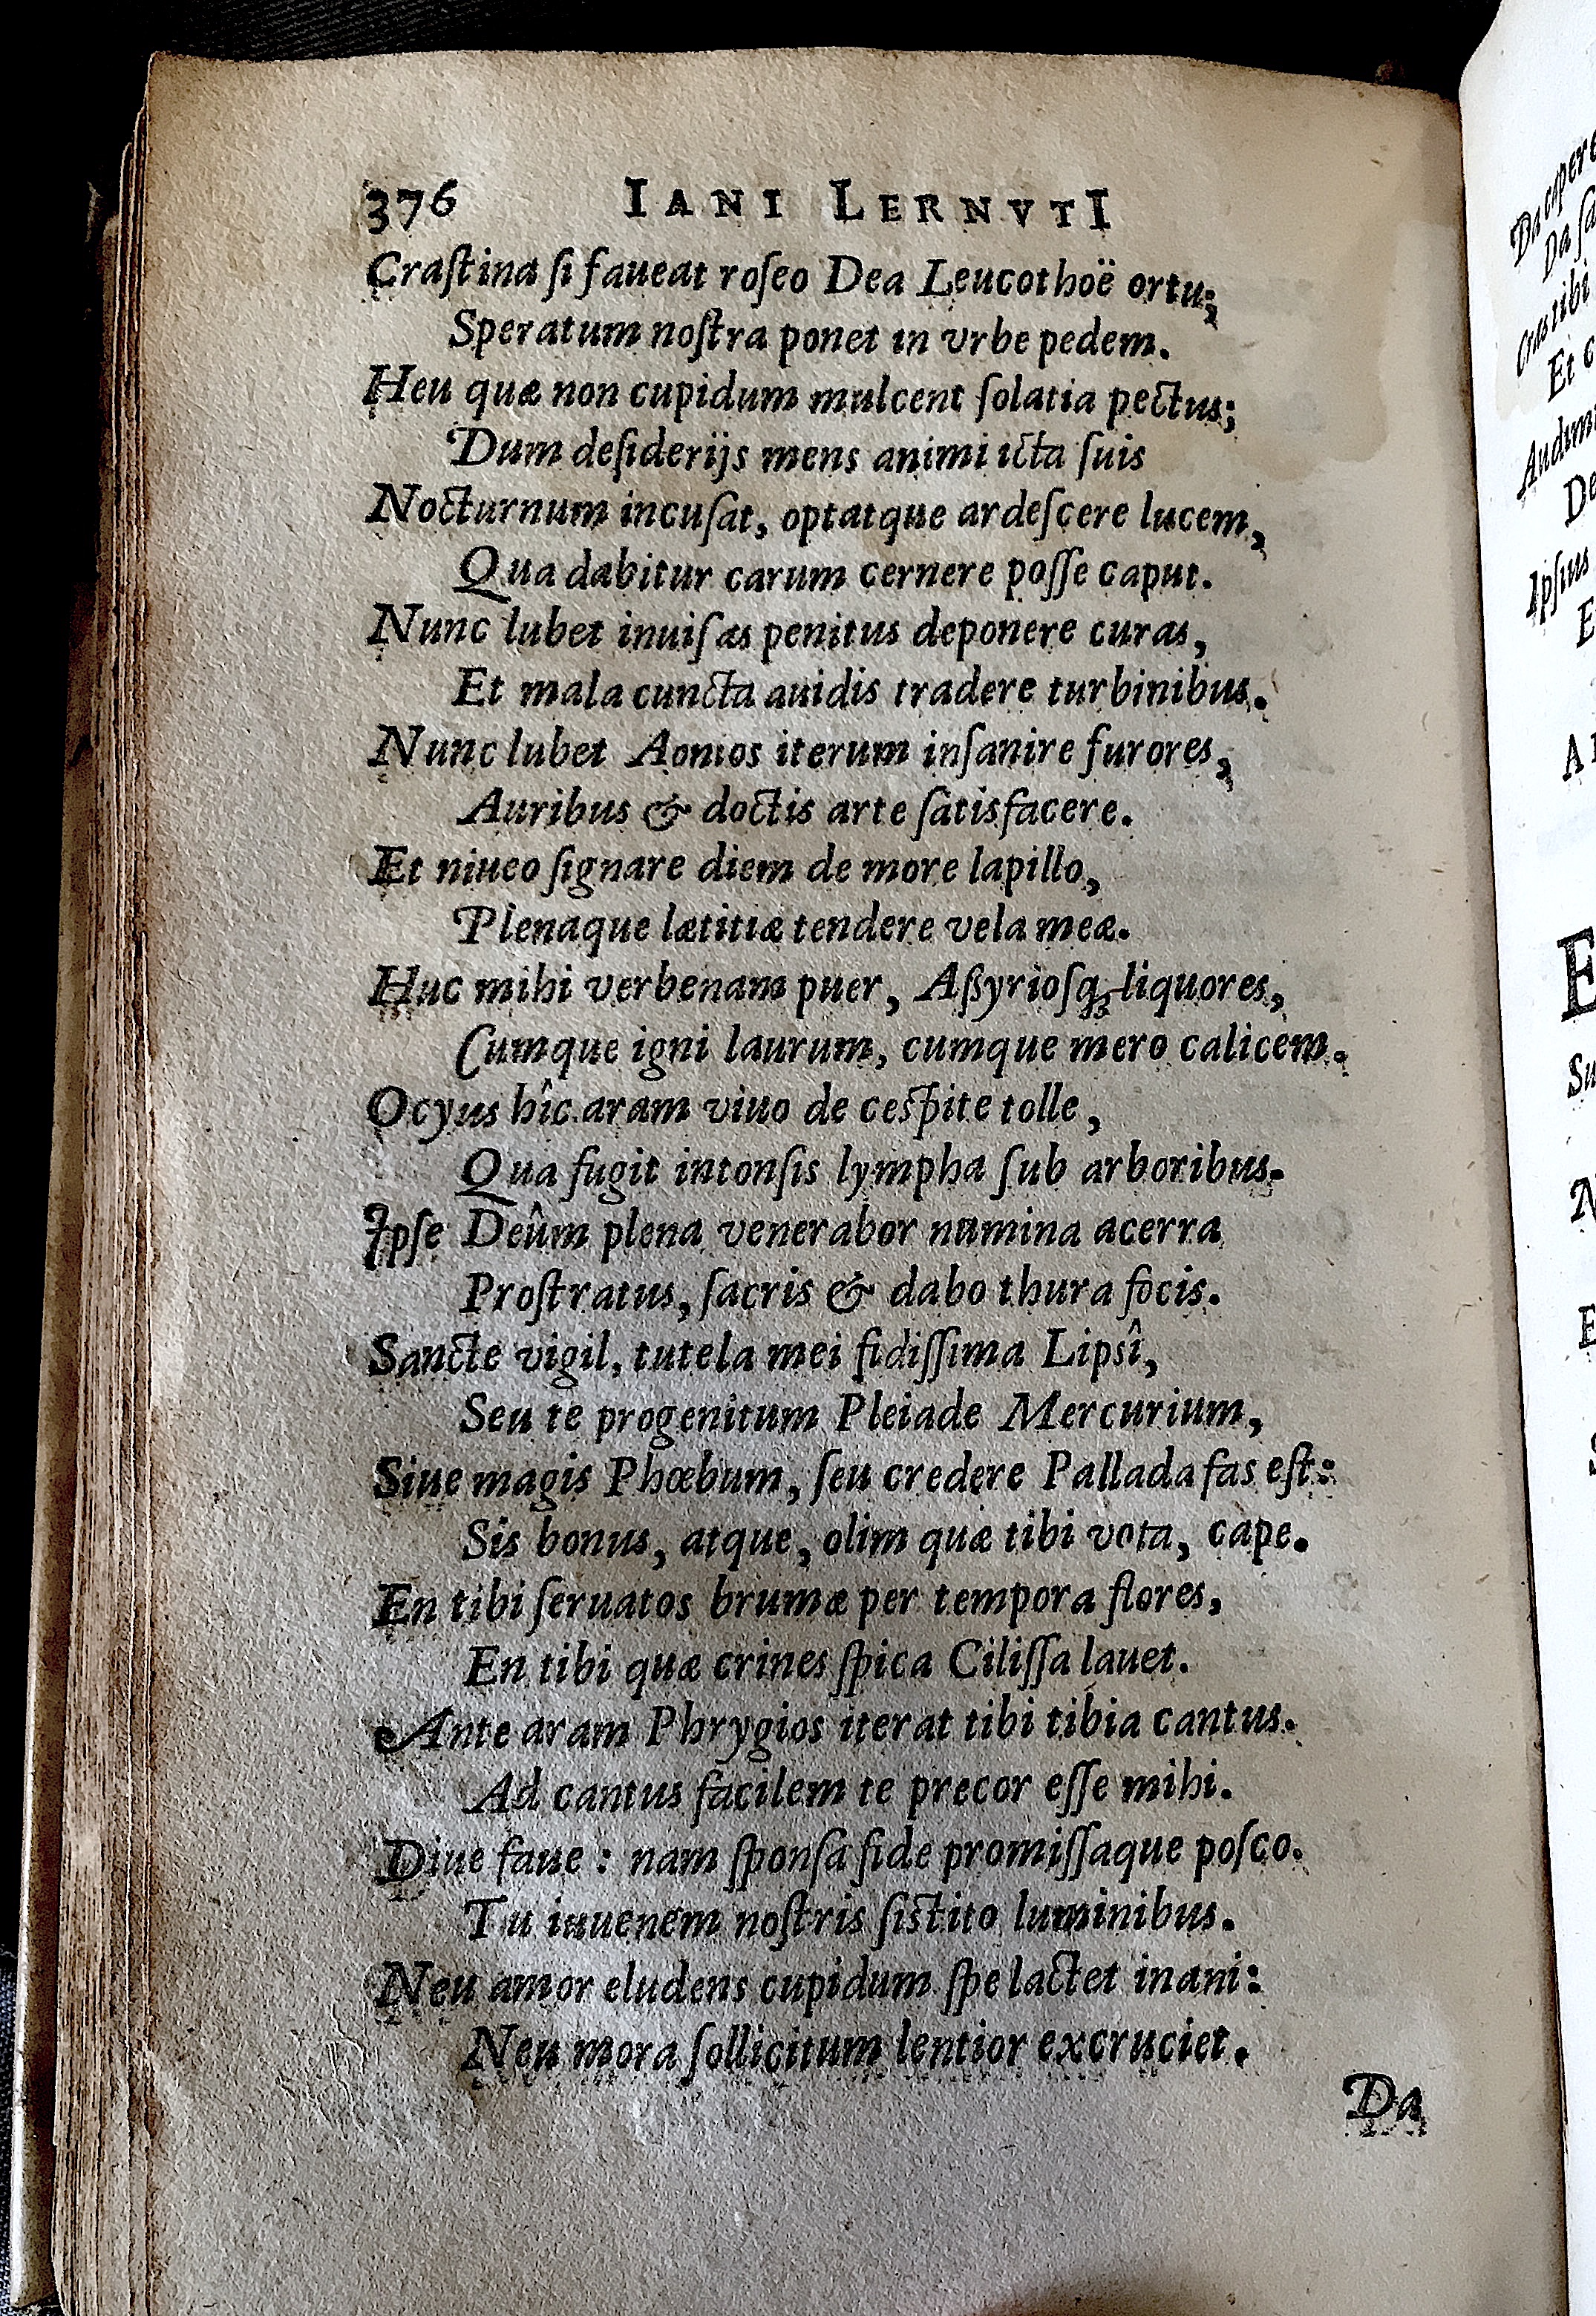 376 IANI LERNVTI
Craſtina ſi faueat roſeo Dea Leucothoë ortu;
Speratum noſtra ponet in vrbe pedem.
Heu quæ non cupidum mulcent ſolatia pectus;
Dum deſiderijs mens animi icta ſuis
Nocturnum incuſat, optatque ardeſcere lucem,
Qua dabitur carum cernere poſſe caput.
Nunc lubet inuiſas penitus deponere curas,
Et mala cuncta auidis tradere turbinibus.
Nunc lubet Aonios iterum inſanire furores,
Auribus & doctis arte ſatisfacere.
Et niueo ſignare diem de more lapillo,
Plenaque lætitiæ tendere vela meæ.
Huc mihi verbenam puer, Aßyrioſq; liquores,
Cumque igni laurum, cumque mero calicem.
Ocyus hîc aram viuo de ceſpite tolle,
Qua fugit intonſis lympha ſub arboribus.
Ipſe Deûm plena venerabor numina acerra
Proſtratus, ſacris & dabo thura focis.
Sancte vigil, tutela mei fidiſſima Lipsî,
Seu te progenitum Pleiade Mercurium,
Siue magis Phœbum, ſeu credere Pallada fas eſt:
Sis bonus, atque, olim quæ tibi vota, cape.
En tibi ſeruatos brumæ per tempora flores,
En tibi quæ crines ſpica Ciliſſa lauet.
Ante aram Phrygios iterat tibi tibia cantus.
Ad cantus facilem te precor eſſe mihi.
Diue faue: nam ſponſa fide promiſſaque poſco.
Tu iuuenem noſtris ſiſtito luminibus.
Neu amor eludens cupidum ſpe lactet inani:
Neu mora ſollicitum lentior excruciet.
Da